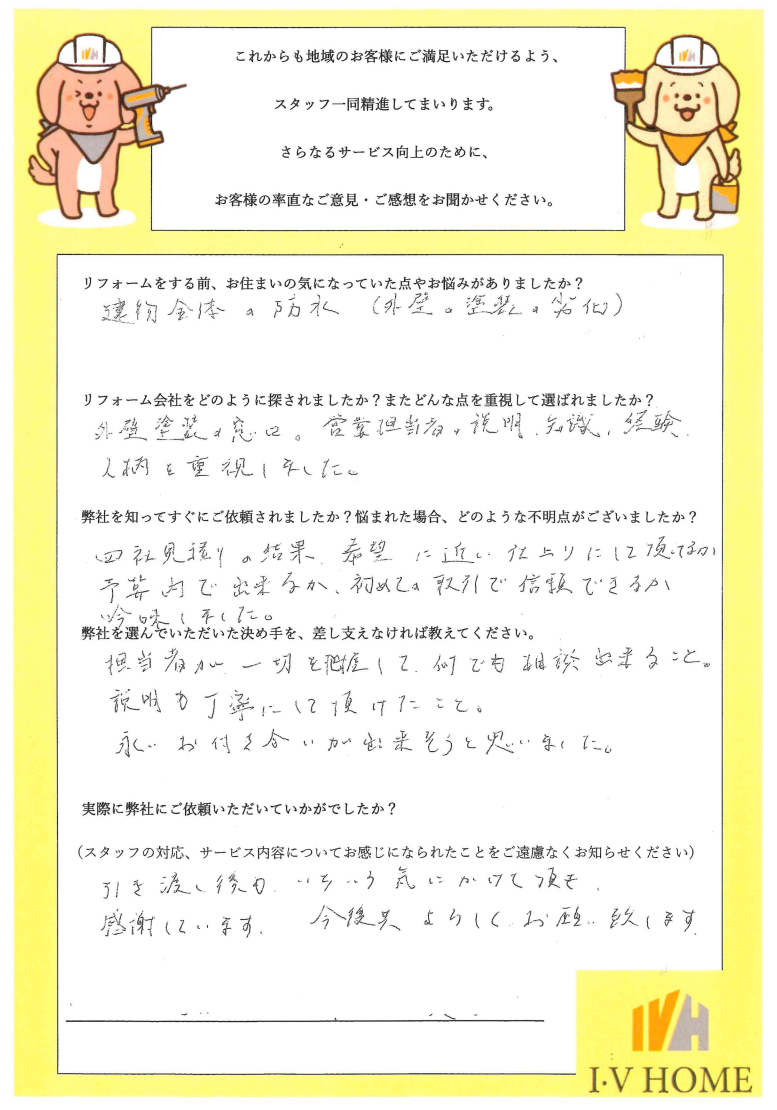 これからも地域のお客様にご満足いただけるよう、
スタッフ一同精進してまいります。
さらなるサービス向上のために、
お客様の率直なご意見・ご感想をお聞かせください。
リフォームをする前、お住まいの気になっていた点やお悩みがありましたか？
建物全体の防水（外壁の塗装の劣化）
リフォーム会社をどのように探されましたか？またどんな点を重視して選ばれましたか？
外壁塗装の窓口。営業担当者の説明、知識、経験、
人柄を重視しました。
弊社を知ってすぐにご依頼されましたか？悩まれた場合、どのような不明点がございましたか？
四社見積りの結果、希望に近い仕上りにして頂けるか
予算内で出来るか、初めての取引で信頼できるか
吟味しました。
弊社を選んでいただいた決め手を、差し支えなければ教えてください。
担当者が、一切を把握して、何でも相談出来ること。
説明も丁寧にして頂けたこと。
永いお付き合いが出来そうと思いました。
実際に弊社にご依頼いただいていかがでしたか？
（スタッフの対応、サービス内容についてお感じになられたことをご遠慮なくお知らせください）
引き渡し後も、いろいろ気にかけて頂き、
感謝しています。今後共よろしくお願い致します
IVH
I・V HOME